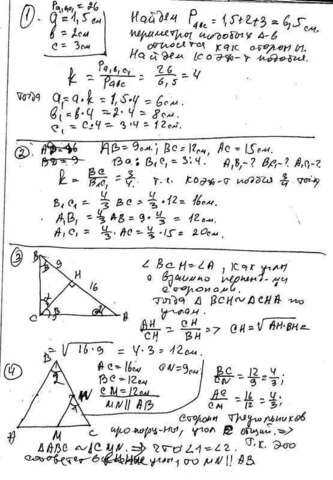 ① P a₁b₁c₁ = 26
a = 1,5 см
b = 2 см
c = 3 см
Найдём P авс = 1,5+2+3 = 6,5 см.
периметры подобных Δ-в
относятся как стороны.
Найдём коэф-т подобия.
k = P A₁B₁C₁ / P ABC = 26 / 6,5 = 4
тогда
a₁ = a·k = 1,5·4 = 6см.
b₁ = b·4 = 2·4 = 8см.
c₁ = c·4 = 3·4 = 12см.
② AB = 9см; BC = 12см, AC = 15см.
BC : B₁C₁ = 3:4. A₁B₁-? B₁C₁-? A₁C₁-?
k = BC / B₁C₁ = 3/4. т.к. коэф-т подобия 3/4 то
B₁C₁ = 4/3 BC = 4/3 · 12 = 16см.
A₁B₁ = 4/3 AB = 9 · 4/3 = 12см.
A₁C₁ = 4/3 · AC = 4/3 · 15 = 20см.
③ B 9 H 16 C A
∠BCH = ∠A, как углы
с взаимно перпен-ми
сторонами.
Тогда Δ BCH ~ Δ CHA по
углам.
AH/CH = CH/BH => CH = √AH·BH =
= √16·9 = 4·3 = 12см.
④ B N A M C
AC = 16см
BC = 12см
CM = 12см
CN = 9см
MN || AB
BC/CN = 12/9 = 4/3;
AC/CM = 16/12 = 4/3;
стороны треугольников
пропорц-ны, угол C общий. =>
ΔABC ~ ΔCMN. => ∠1 = ∠2. т.к. это
соответственные углы, то MN || AB